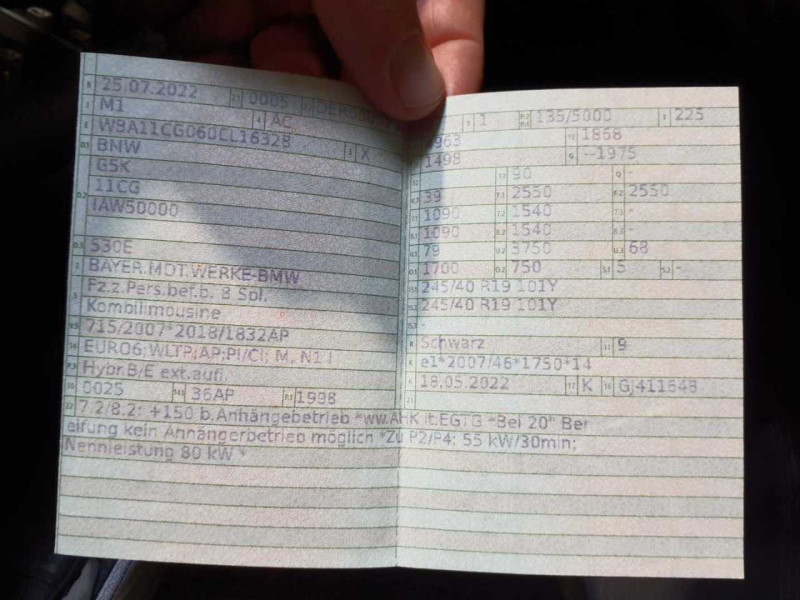 B 25.07.2022 2.1 0005 2.2
J M1 4 AC
E WBA11CG060CL16328 3 X
D.1 BNW
G5K
D.2 11CG
IAW50000
D.3 530E
2 BAYER.MOT.WERKE-BMW
5 Fz.z.Pers.bef.b. 8 Spl.
Kombilimousine
V.9 715/2007*2018/1832AP
14 EURO6;WLTP;AP;PI/CI; M, N1 I
P.3 Hybr.B/E ext.aufl.
10 0025 14.1 36AP P.1 1998
22 7.2/8.2: +150 b.Anhängebetrieb *ww.AHK lt.EGTG *Bei 20" Ber
eifung kein Anhängerbetrieb möglich *Zu P2/P4: 55 kW/30min;
Nennleistung 80 kW *
9 1 P.2 P.4 135/5000 T 225
963 19 1868
1498 G --1975
12 - 13 90 Q -
39 F.1 2550 F.2 2550
1090 7.2 1540 7.3 -
1090 8.2 1540 8.3 -
79 U.2 3750 U.3 68
O.1 1700 O.2 750 S.1 5 S.2 -
15.1 245/40 R19 101Y
15.2 245/40 R19 101Y
15.3 -
R Schwarz 11 9
K e1*2007/46*1750*14
6 18.05.2022 17 K 16 GJ411648
21